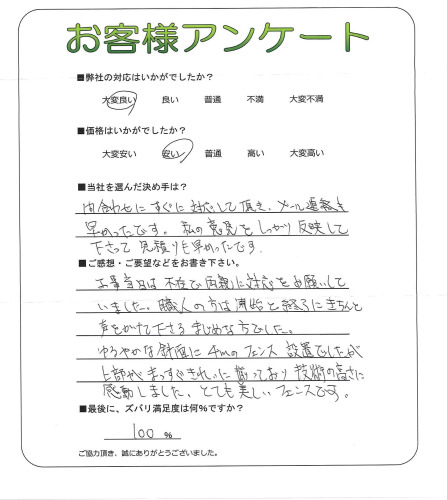 お客様アンケート
■弊社の対応はいかがでしたか?
大変良い 良い 普通 不満 大変不満
■価格はいかがでしたか?
大変安い 安い 普通 高い 大変高い
■当社を選んだ決め手は?
問合わせにすぐに対応して頂き、メール連絡も
早かったです。私の意見をしっかり反映して
下さって見積りも早かったです。
■ご感想・ご要望などをお書き下さい。
工事当日は不在で両親に対応をお願いして
いました。職人の方は開始と終了にきちんと
声をかけて下さるまじめな方でした。
ゆるやかな斜面に4mのフェンス設置でしたが
上部がまっすぐきれいに揃っており技術の高さに
感動しました。とても美しいフェンスです。
■最後に、ズバリ満足度は何%ですか?
100 %
ご協力頂き、誠にありがとうございました。